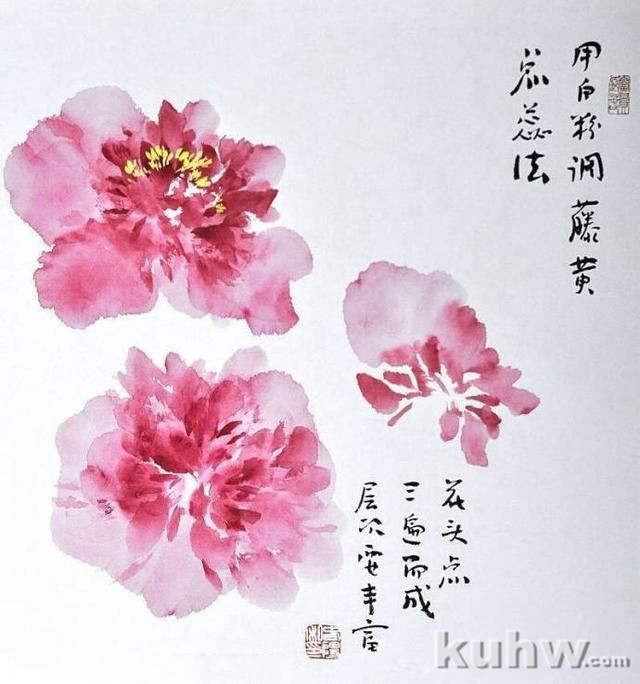 用白粉调藤黄
点蕊法
花头点
三遍而成
层次要丰富
kuhw.com